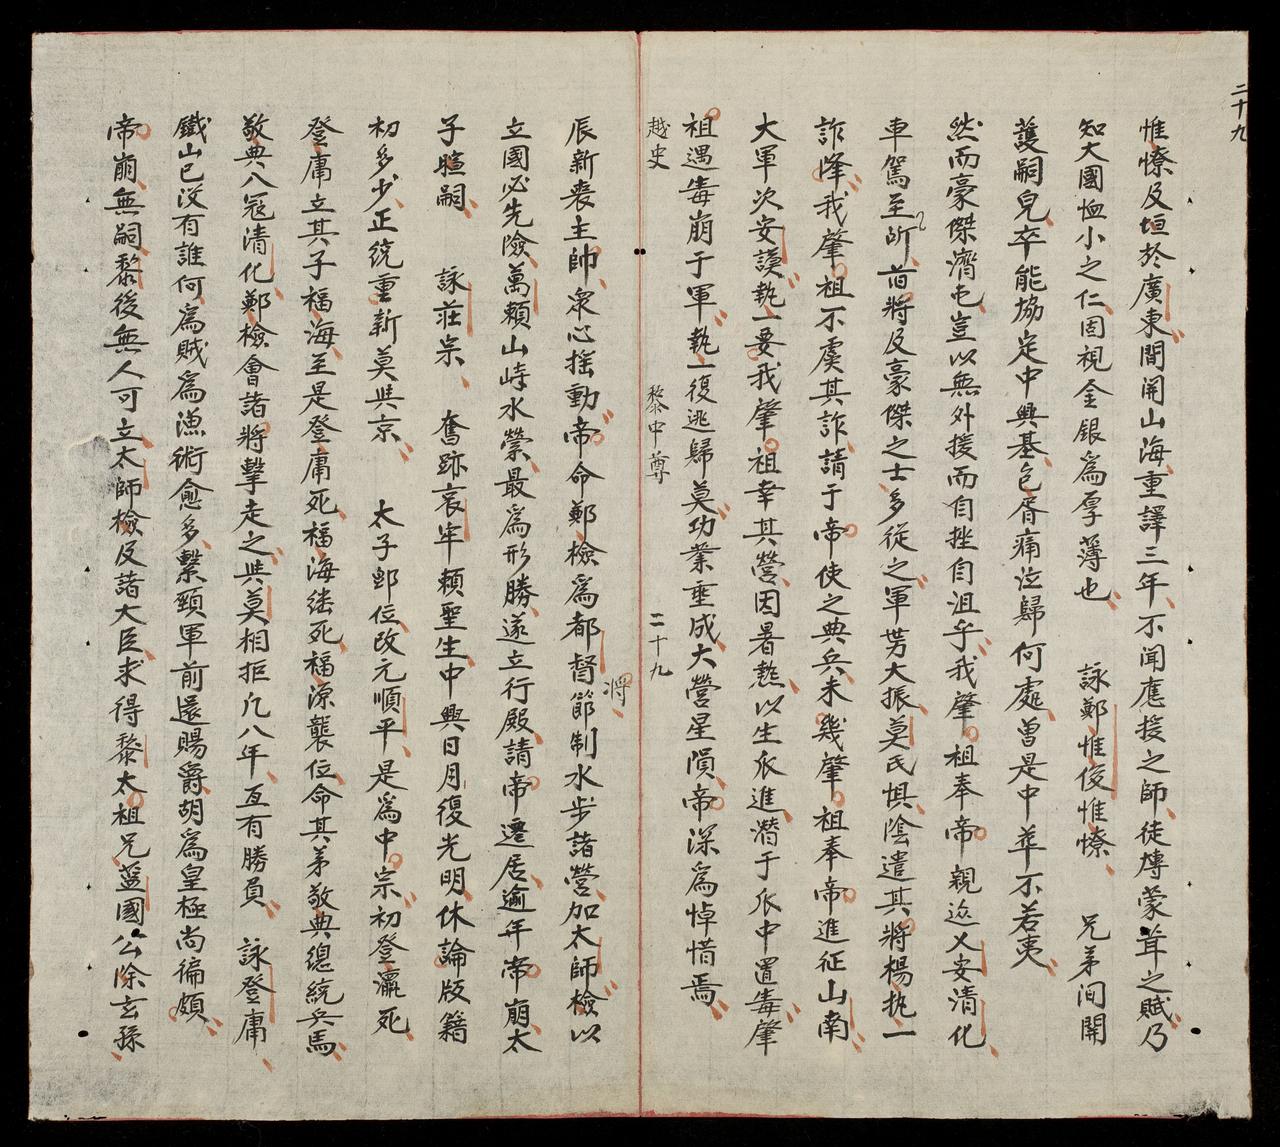 二十九
惟憭及垣於廣東間開山海重譯三年不聞應援之師徒慱蒙茸之賦乃
知大國恤小之仁固視金銀為厚薄也 詠鄭惟俊惟憭 兄弟间開
護嗣皃卒能協定中興基包胥痛泣歸何處曾是中華不若夷
然而豪傑濟屯豈以無外援而自挫自沮乎我肇祖奉帝親巡乂安清化
車駕至所舊將及豪傑之士多從之軍势大振莫氏惧陰遣其將楊执一
詐降我肇祖不虞其詐請于帝使之典兵未幾肇祖奉帝進征山南
大軍次安謨执一要我肇祖幸其營因暑熱以生瓜進潜于瓜中置毒肇
祖遇毒崩于軍执一復逃歸莫功業垂成大營星隕帝深為悼惜焉
越史 黎中尊 二十九
辰新喪主帥衆心摇動帝命鄭檢為都將節制水步諸營加太師檢以
立國必先險萬賴山峙水縈最為形勝遂立行殿請帝遷居逾年帝崩太
子暄嗣 詠莊宗 奮跡哀牢賴聖生中興日月復光明休論版籍
初多少正統重新莫與京 太子即位改元順平是為中宗初登瀛死
登庸立其子福海至是登庸死福海继死福源襲位命其弟敬典總統兵馬
敬典入冦清化鄭檢會諸將擊走之與莫相拒凢八年互有勝負 詠登庸
鐵山已没有誰何為賊為漁術愈多繫頸軍前還賜爵胡為皇極尚徧頗
帝崩無嗣黎後無人可立太師檢及諸大臣求得黎太祖兄藍國公除玄孫